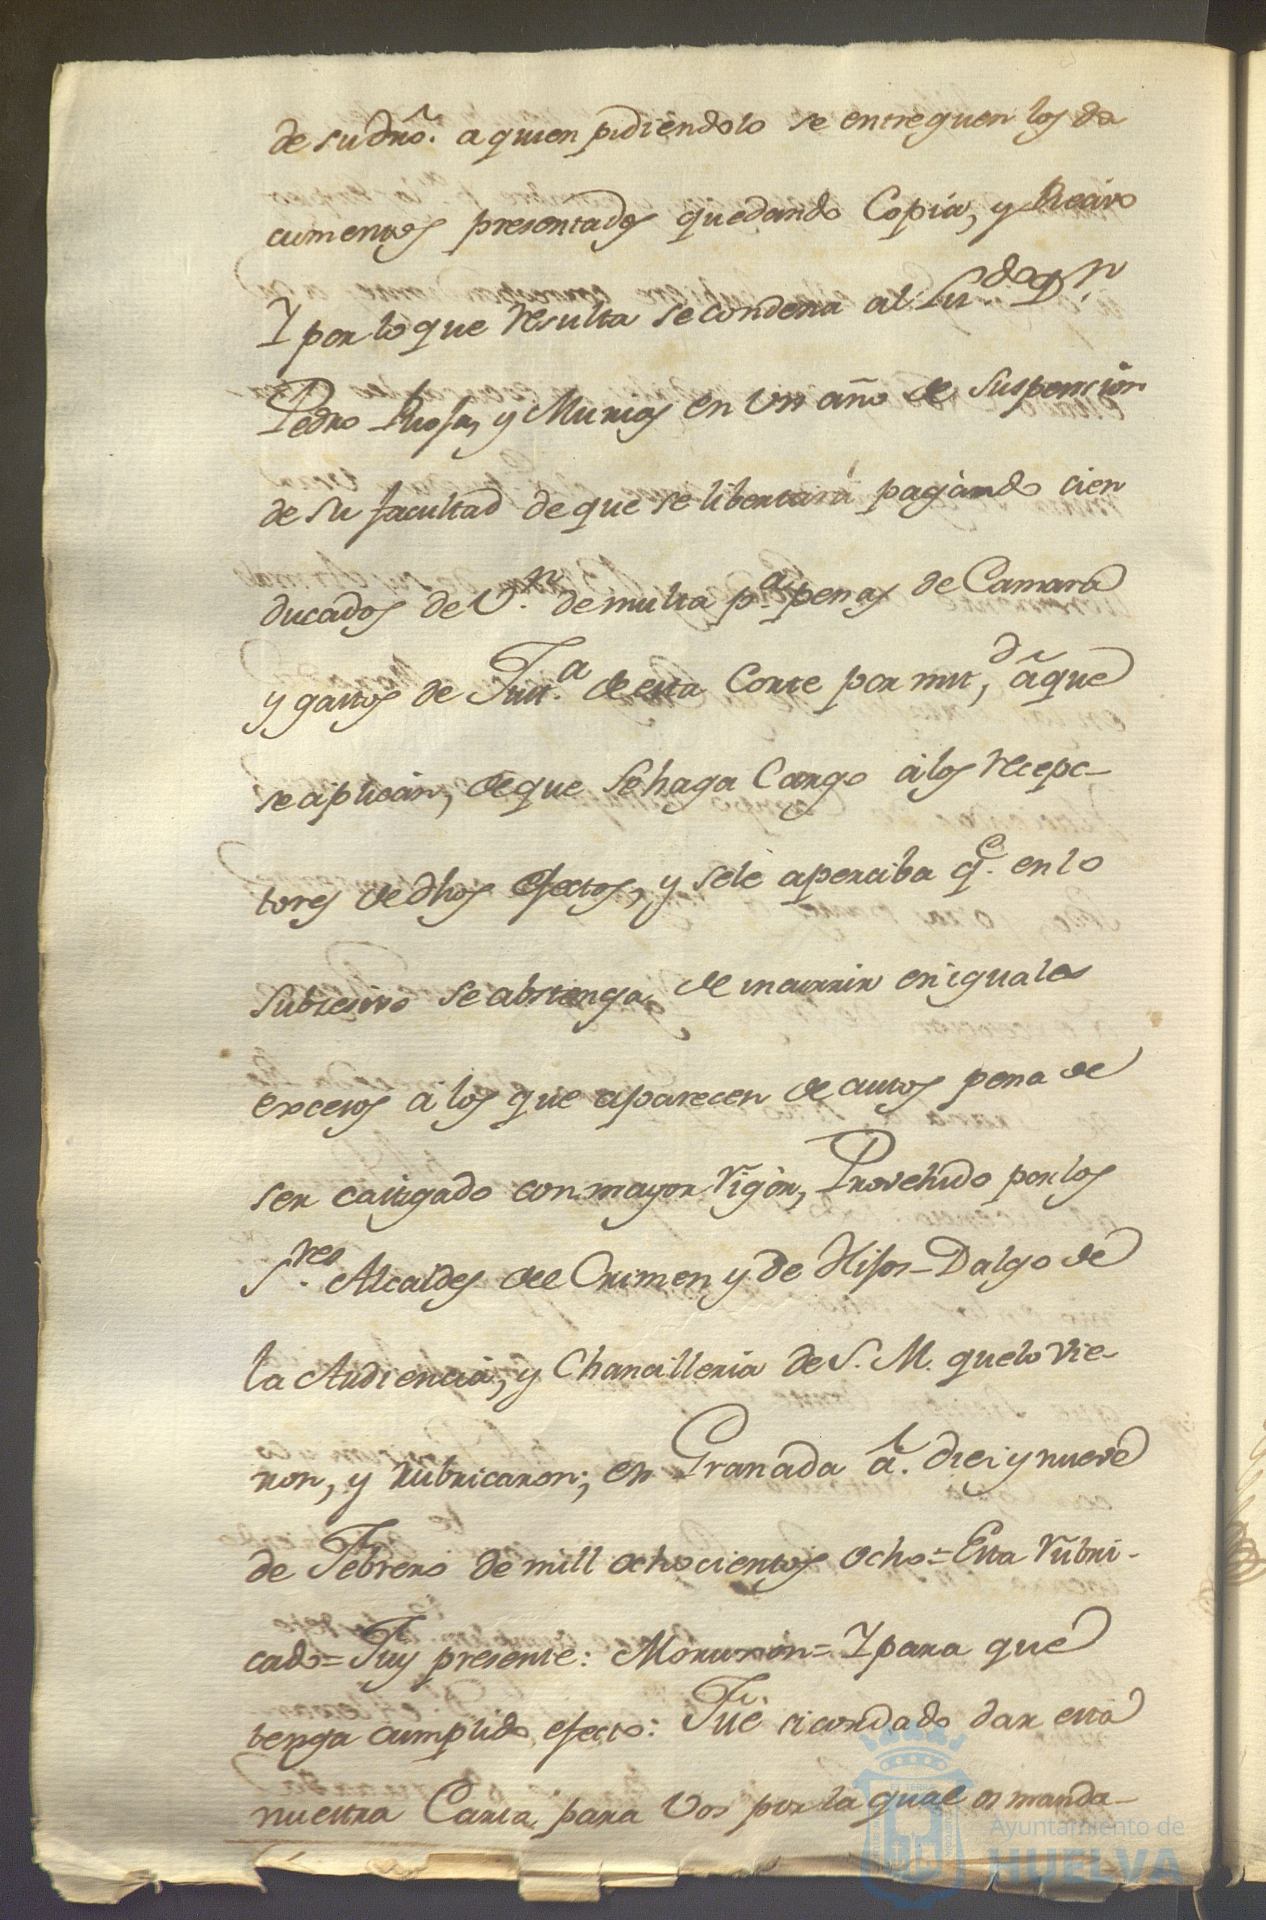 de su dño. a quien pidiendolo se entreguen los do
cumentos presentados quedando Copia, y Recivo
Y por lo que resulta se condena al Lizdo. Dn.
Pedro Riofa, y Murias en un año de suspencion
de su facultad de que se libertará pagando cien
ducados de Vn. de multa pa. penas de Camara
y gastos de Justa. de esta Corte por mitd, á que
se aplican, de que se haga Cargo a los recep-
tores de dhos efectos, y se le aperciba qe. en lo
subcesivo se abstenga de incurrir en iguales
excesos a los que aparecen de autos pena de
ser castigado con mayor rigor, Provehido por los
Sres. Alcaldes del Crimen y de Hijos-Dalgo de
la Audiencia, y Chancilleria de S. M. que lo vie-
ron, y rubricaron; en Granada á. diez y nueve
de Febrero de mill ochocientos ocho = Esta rubri-
cado = Fuy presente: = Y para que
tenga cumplido efecto: Fué acordado dar esta
nuestra Carta para Vos por la qual os manda-
Ayuntamiento de
HUELVA